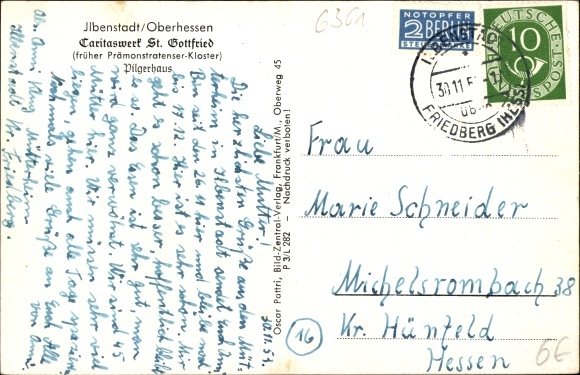 Jlbenstadt/Oberhessen
Caritaswerk St. Gottfried
(früher Prämonstratenser-Kloster)
Pilgerhaus
6361
NOTOPFER
2 BERLIN
STEUERMARKE
DEUTSCHE
10
BUNDESPOST
ILBENSTADT
30.11.5
FRIEDBERG (HESS)
30.11.53.
Liebe Mutter!
Die herzlichsten Grüße aus dem Müt-
terheim in Ilbenstadt sendet Euch Anni
Bin seit d. 26.11 hier und bleibe noch
bis 17.12. Hier ist es sehr schön. Mir
geht es schon besser, hoffentlich bleibt
es so. Das Essen ist sehr gut, man
wird ganz verwöhnt. Wir sind 45
Mütter hier. Wir müssen sehr viel
liegen, gehen auch alle Tage spazieren
Nochmals viele Grüße an Euch Alle
von Anni.
Ilbenstadt Kr. Friedberg.
Oscar Pattri, Bild-Zentral-Verlag, Frankfurt/M., Oberweg 45
P 3/L 282 — Nachdruck verboten!
Frau
Marie Schneider
Michelsrombach 38
Kr. Hünfeld
Hessen
16
6€